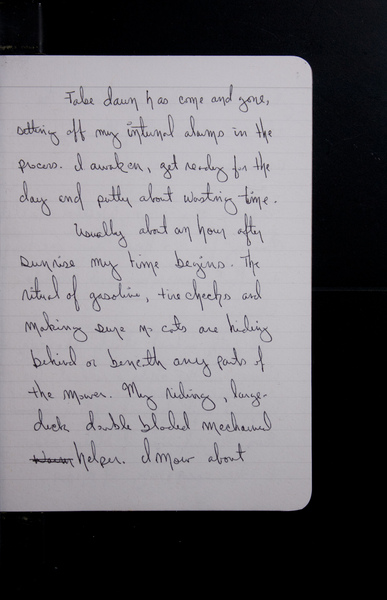 False dawn has come and gone,
setting off my internal alarms in the
process. I awaken, get ready for the
day and putty about wasting time.
Usually about an hour after
sunrise my time begins. The
ritual of gasoline, tire checks and
making sure no cats are hiding
behind or beneath any parts of
the mower. My riding, large-
deck double bladed mechanical
helper. I mow about